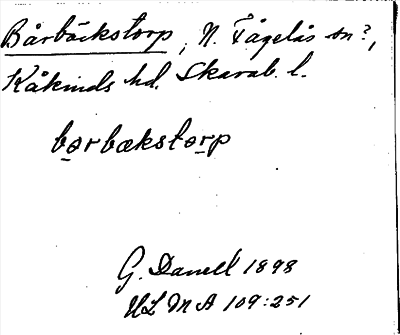 Bårbäckstorp, N. Fågelås sn?,
Kåkinds hd. Skarab. l.
bo̲rbæksto̲rp
G. Danell 1898
ULMA 109:251